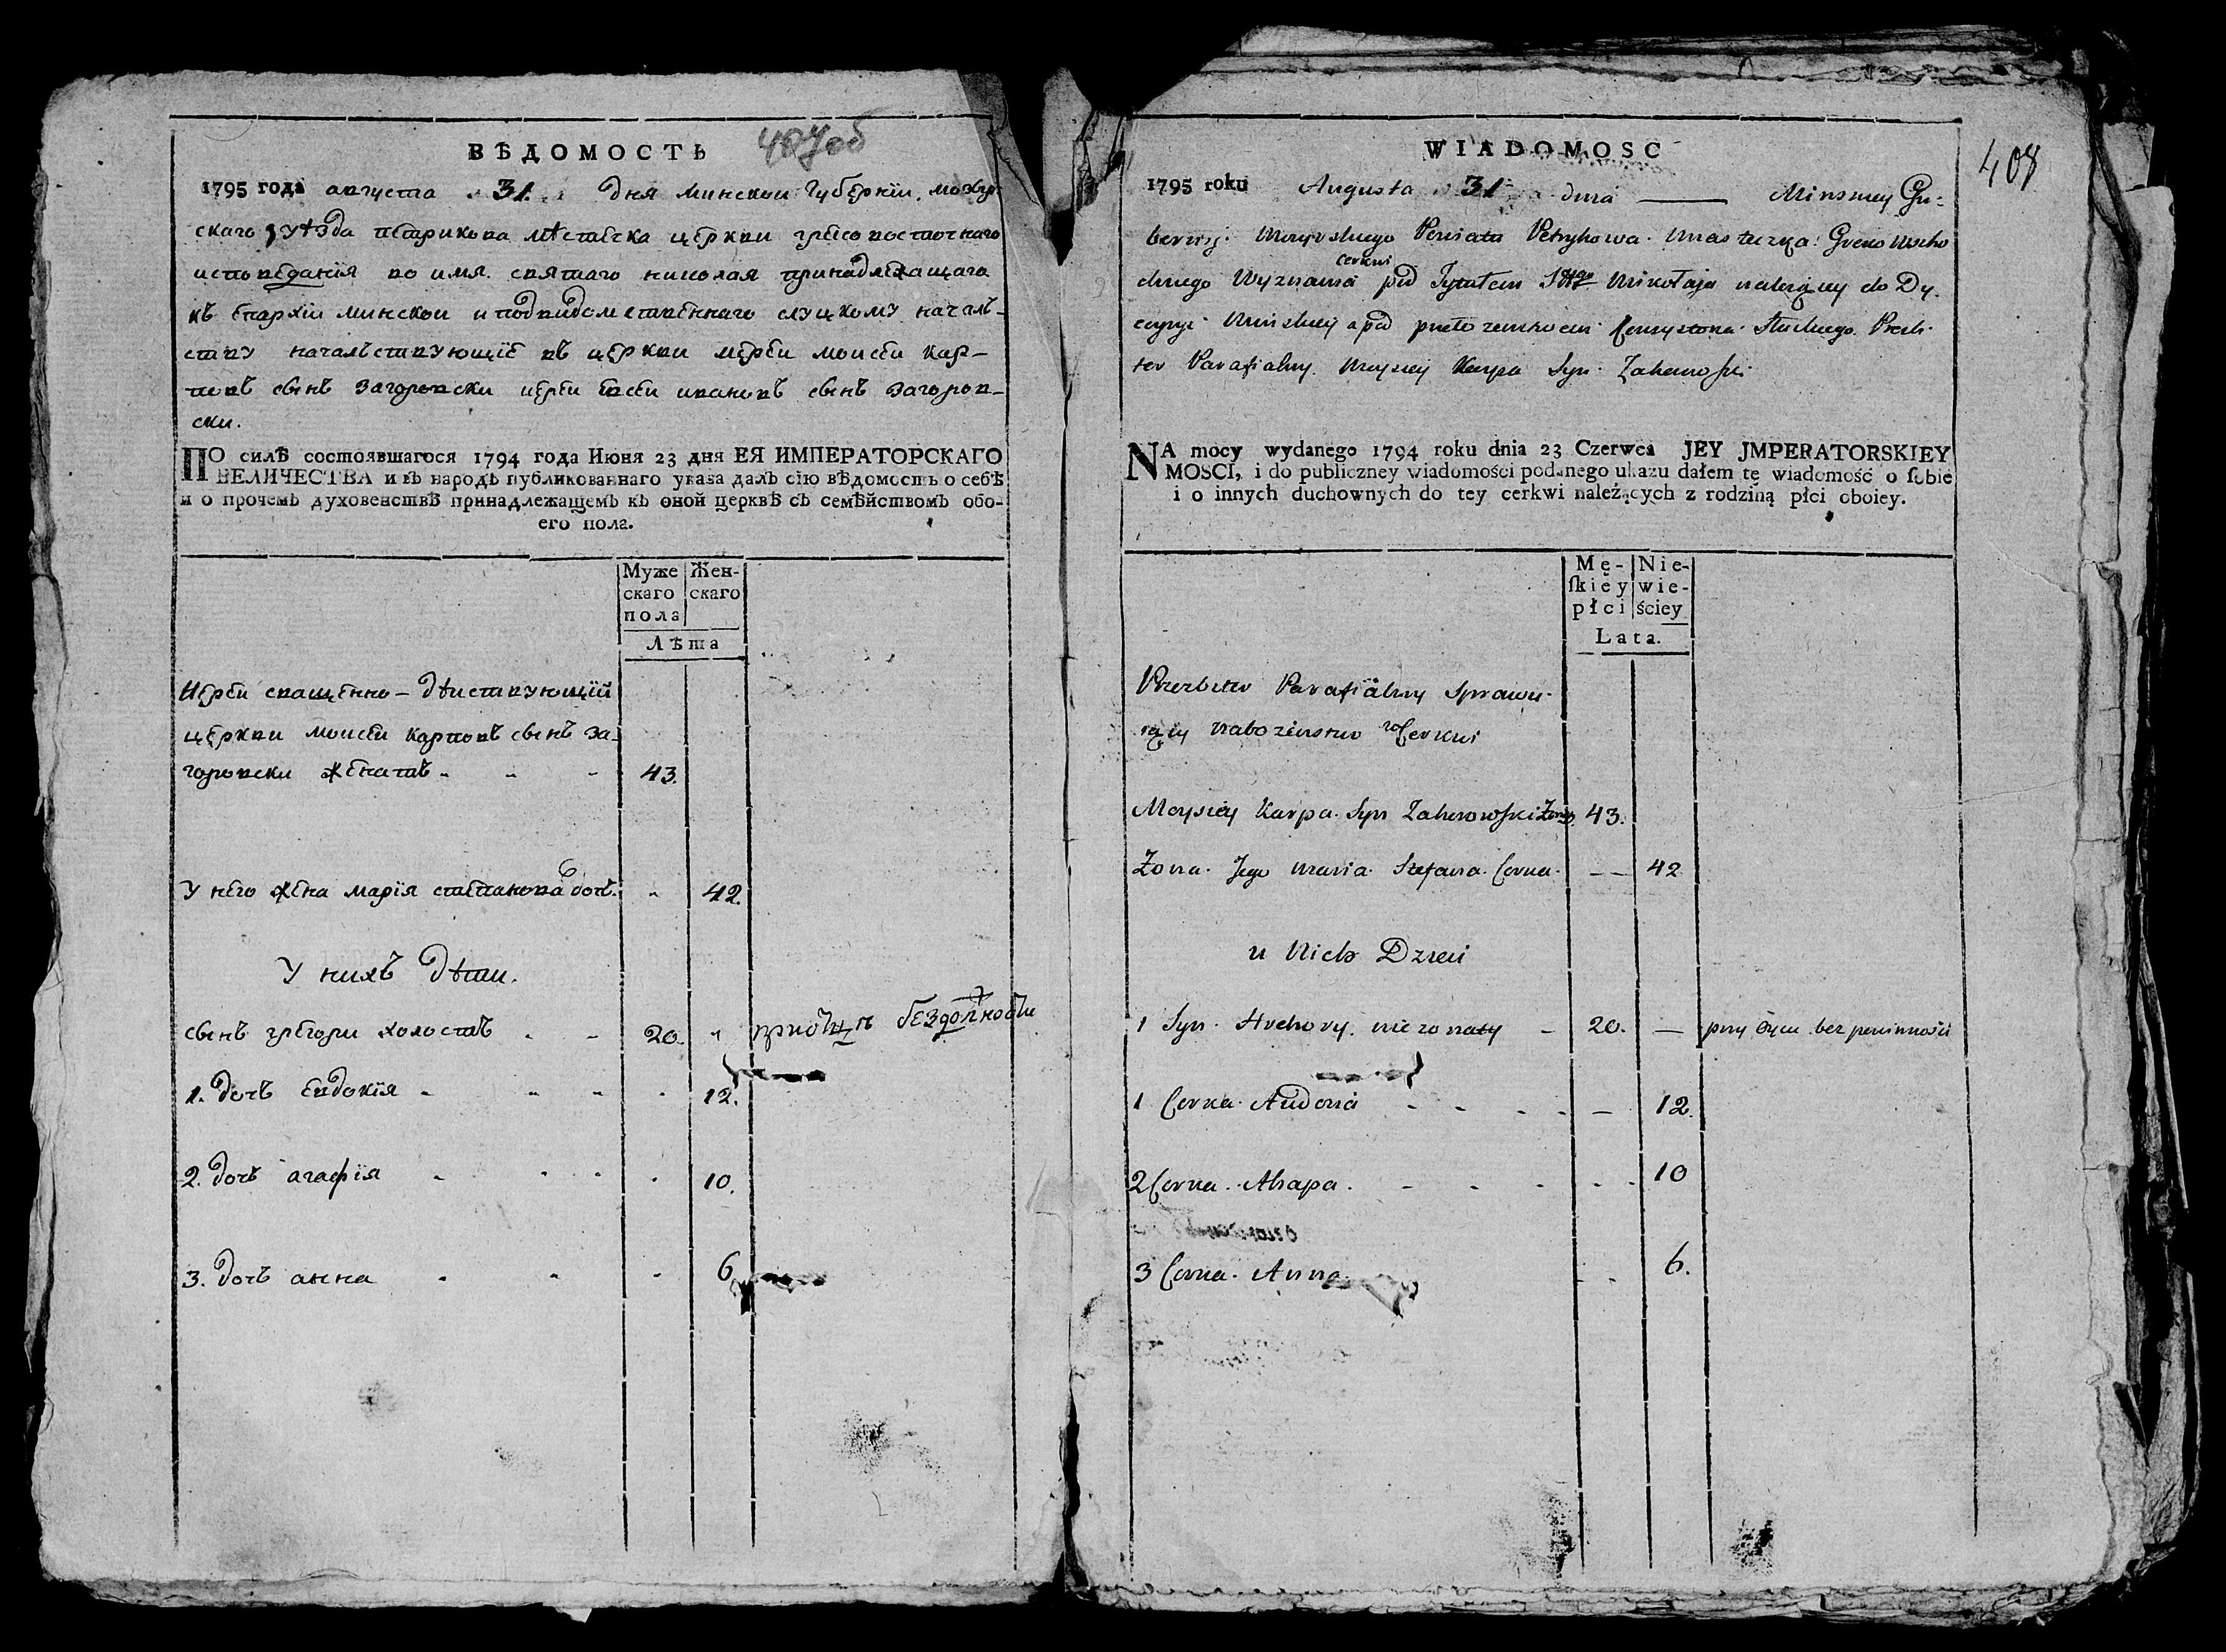 ВѢДОМОСТЬ
407об
1795 года августа 31. дня Минскои Губерніи. мозыр-
скаго уѣзда петрикова мѣстечка церкви греко восточнаго
исповеданія во имя святаго николая принадлежащаго
къ епархіи минскои и подвидомственнаго слуцкому началь-
ству началъствующіе въ церкви иереи моисеи Кар-
повъ свинъ Загоровски иереи евсеи ивановъ свинъ загоров-
ски.
ПО силѣ состоявшагося 1794 года Июня 23 дня ЕЯ ИМПЕРАТОРСКАГО
ВЕЛИЧЕСТВА и въ народъ публикованнаго указа далъ сію вѣдомость о себѣ
и о прочемъ духовенствѣ принадлежащемъ къ оной церквѣ съ семѣйствомъ обо-
его пола.
Муже Жен-
скаго скаго
пола
Лѣта
Иереи сващенно-дѣиствующіи
церкви моисеи карповъ свинъ за-
горовски женатъ 43.
У него жена маріа степанова доч. 42.
У нихъ дѣти.
свинъ грегори холостъ 20. бездолжности
1. дочъ евдокіа 12.
2. дочъ агафіа 10.
3. дочъ анна 6
WIADOMOSC
408
1795 roku Augusta 31 dnia Minskiey Gu-
berniy. Mozyrskiego Powiatu Petrykowa Miasteczka Greko Wscho
cerkwi
dniego Wyznania pod Tytułem Stgo Mikołaja należącey do Dy.
ecezyi Minskiey a pod Konsystora Słuckiego Prezbi-
ter Parafialny Moysiey Karpa Syn Zahorowski
NA mocy wydanego 1794 roku dnia 23 Czerwca JEY JMPERATORSKIEY
MOSCI, i do publiczney wiadomości podanego ukazu dałem tę wiadomość o ſobie
i o innych duchownych do tey cerkwi należących z rodziną płci oboiey.
Mę- Nie-
ſkiey wie-
płci ściey
Lata.
Prezbiter Parafialny Sprawu-
iący nabozenstwo w Cerkwi
Moysiey Karpa Syn Zahorowski 43.
Żona Jego Maria Stefana Corka 42
u Nich Dzieci
1 Syn Hrehory nie zonaty 20. przy Oycu bez powinności
1 Corka Audocia 12.
2 Corka Ahapa 10
3 Corka Anna 6.